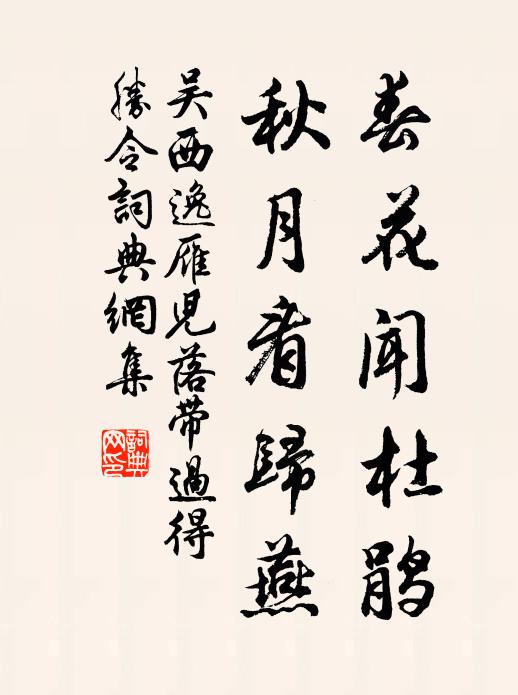 春花聞杜鹃
秋月看歸燕
吴西逸雁児落带過得
勝令詞典網集
詞典网印